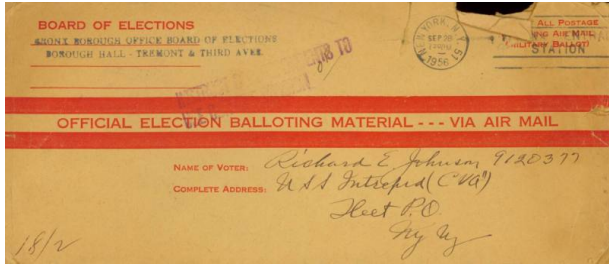 BOARD OF ELECTIONS
BRONX BOROUGH OFFICE BOARD OF ELECTIONS
BOROUGH HALL - TREMONT & THIRD AVES.
NEW YORK, N.Y.
SEP 28
1956
ALL POSTAGE
AIR MAIL
MILITARY BALLOT
STATION
OFFICIAL ELECTION BALLOTING MATERIAL --- VIA AIR MAIL
NAME OF VOTER: Richard E Johnson 9120377
COMPLETE ADDRESS: USS Intrepid (CVA)
Fleet P.O.
Ny Ny
18/2